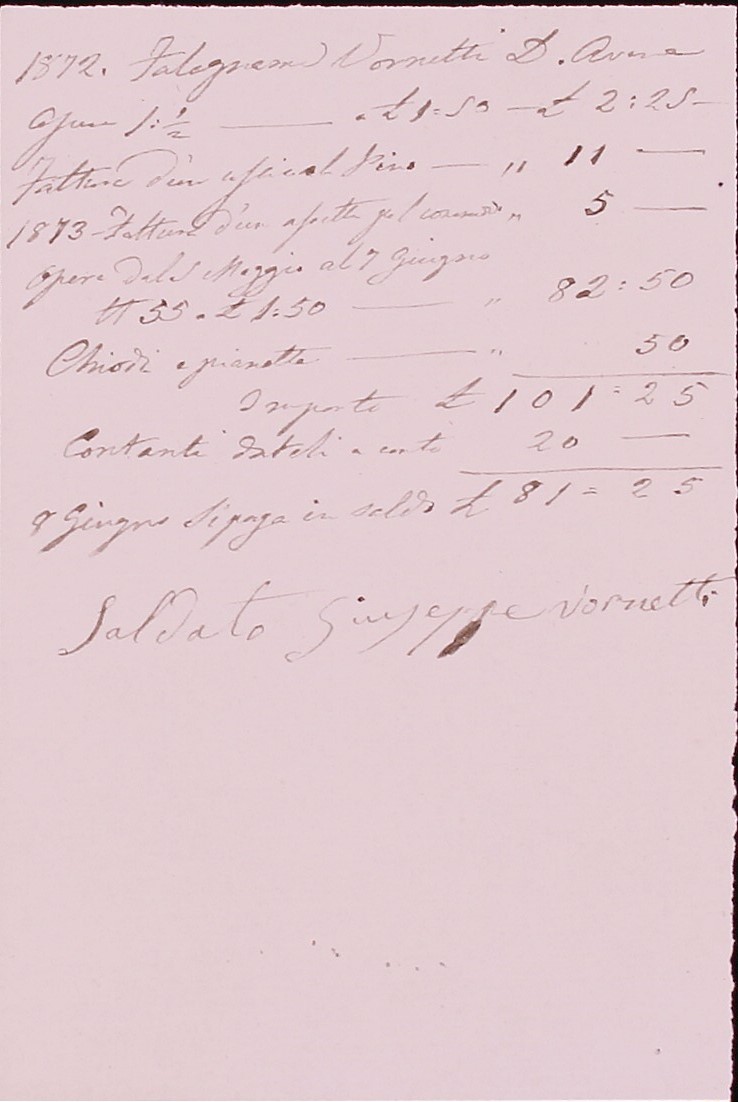 1872. Falegname Vornetti D. Avere
Opere 1:½ — a £ 1:50 — £ 2:25 —
Fatture d'un — „ 11 —
1873 - Fattura d'un pel „ 5 —
Opere dal 5 Maggio al 7 Giugno
N 55 a £ 1:50 — „ 82:50
Chiodi e pianette — „ 50
Importo £ 101=25
Contanti dateli a conto 20 —
8 Giugno si paga in saldo £ 81=25
Saldato Giuseppe Vornetti